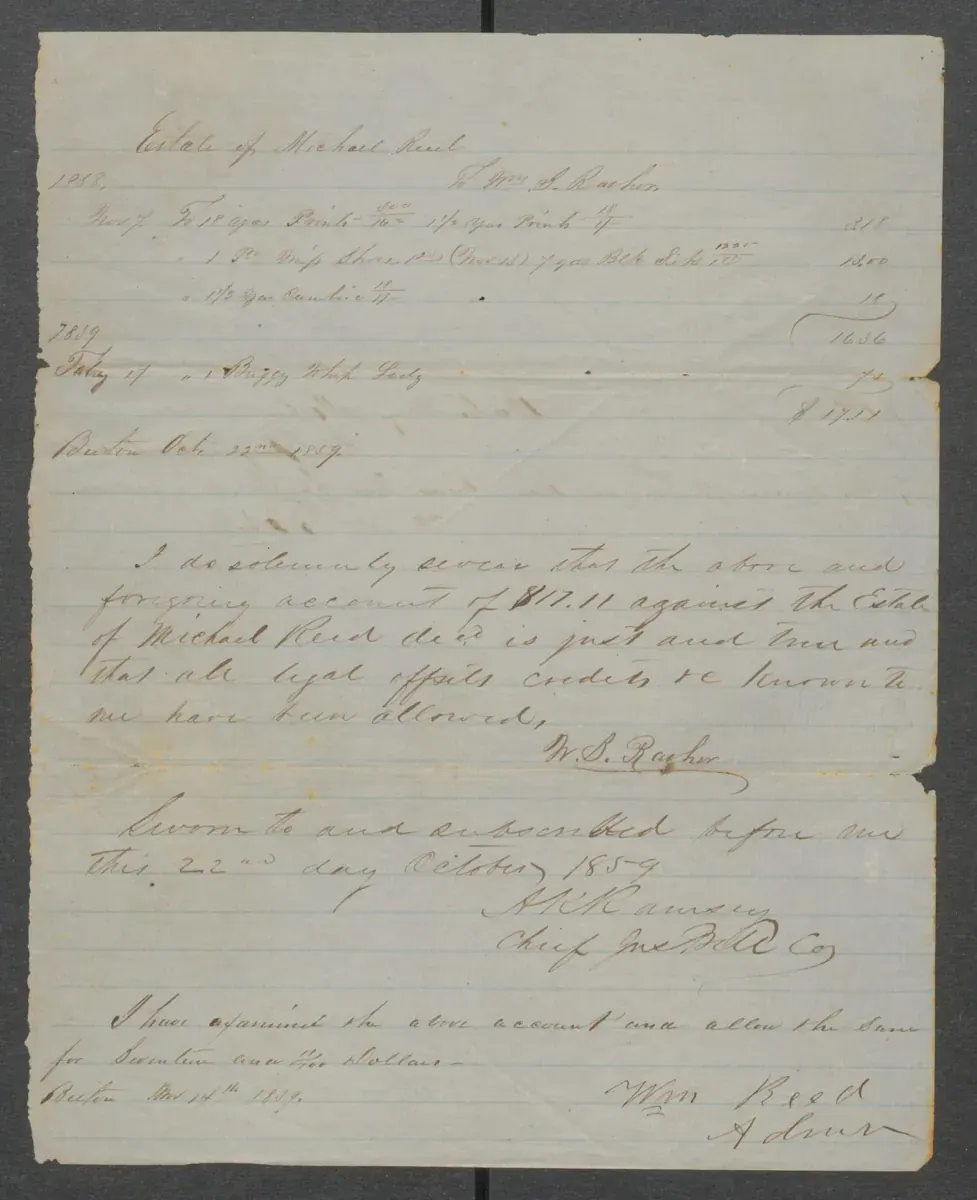 Estate of Michael Reed
1858. To Wm. S. Rather.
Nov 7 To 18 yds Prints 1 1/2 yds Prints 318
" 1 Pr Shoes (Nov 13) 7 yds Blk Silk 13.00
" 1 1/2 yds Cambric 18
1859 1636
17 " 1 Buggy Whip Lady 75
$ 1711
Belton Oct 22nd 1859.
I do solemnly swear that the above and
foregoing account of $17.11 against the Estate
of Michael Reed decd is just and true and
that all legal offsets credits &c known to
me have been allowed,
W. S. Rather
Sworn to and subscribed before me
this 22nd day October 1859
A K Ramsey
Chief Jus Bell Co
I have examined the above account and allow the same
for Seventeen and 11/100 Dollars-
Belton Nov 14th 1859.
Wm Reed
Admr